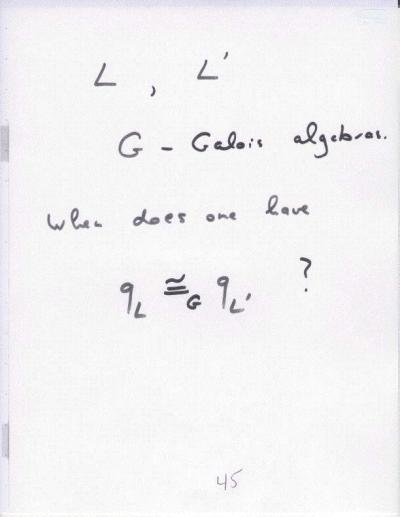 L , L'
G - Galois algebras.
When does one have
q_L ≅_G q_L' ?
45